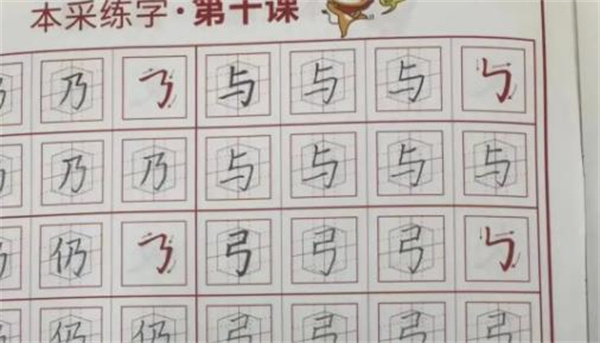 本采练字·第十课
乃 乃 ㇋ 与 与 与 ㇉
乃 乃 乃 与 与 与 与
仍 仍 ㇋ 弓 弓 弓 ㇉
仍 仍 仍 弓 弓 弓 弓